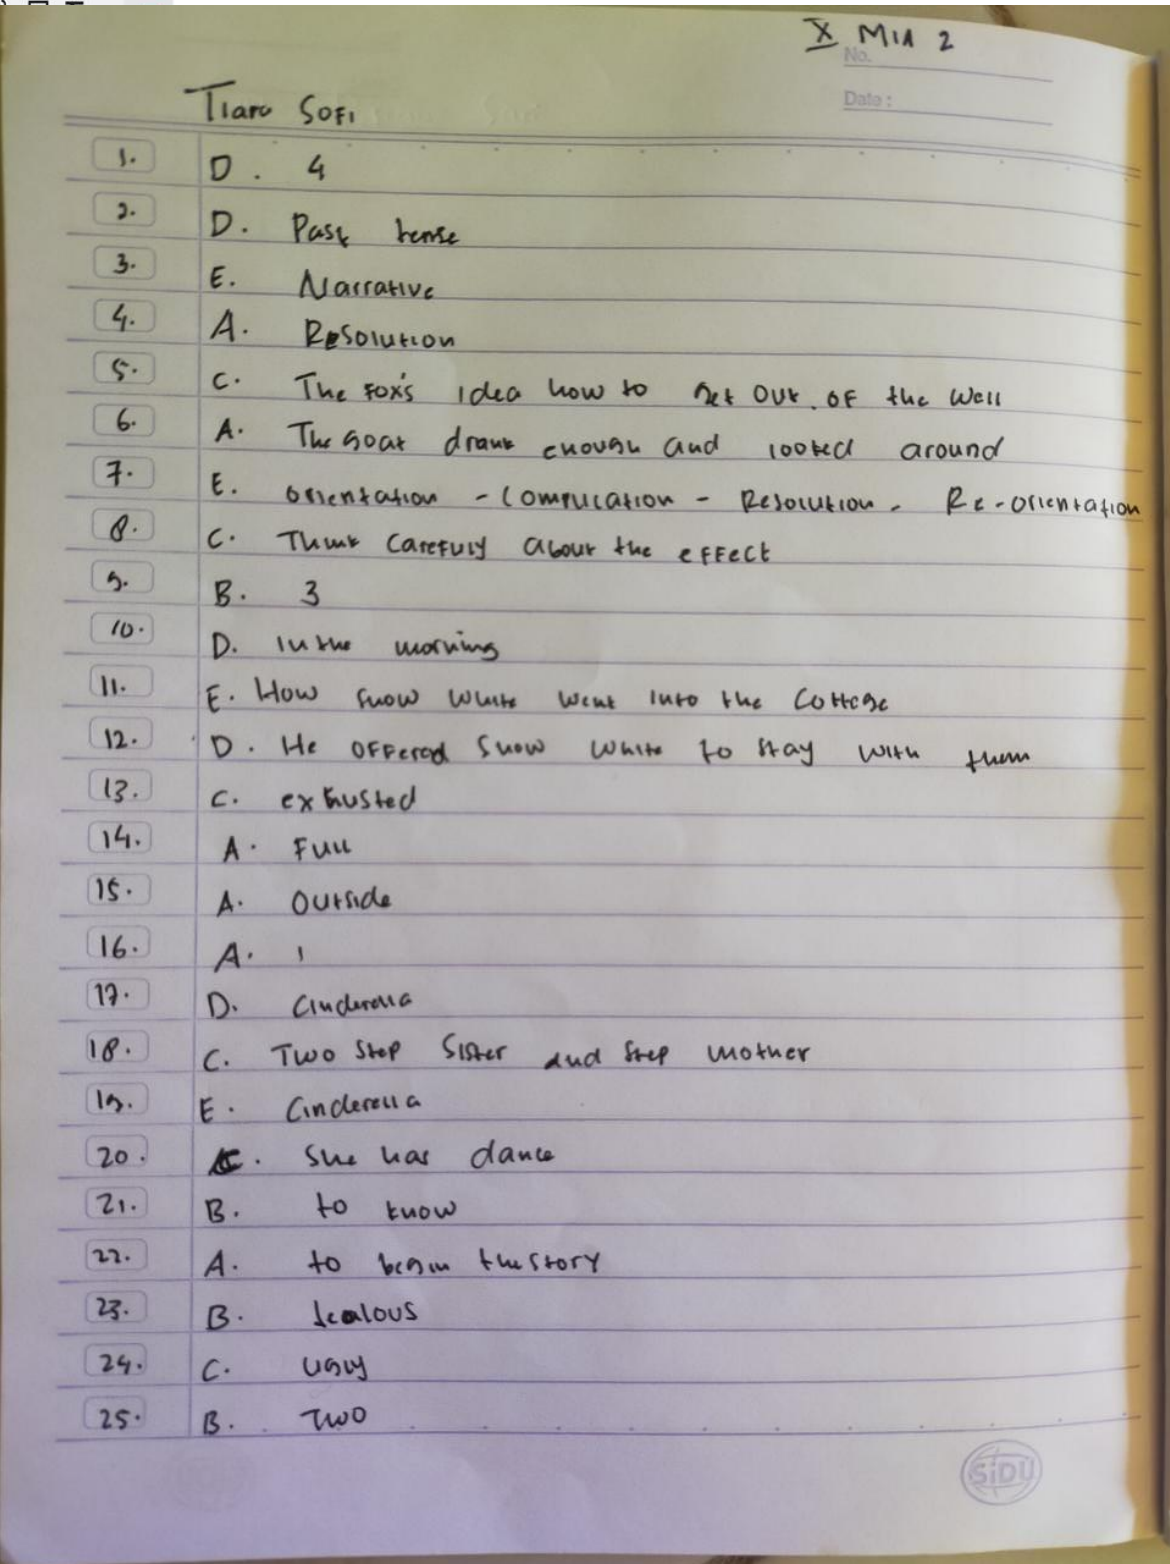 X MIA 2
No.
Date:
Tiara Sofi
1. D. 4
2. D. Past tense
3. E. Narrative
4. A. Resolution
5. C. The fox's idea how to get out of the well
6. A. The goat drank enough and looked around
7. E. Orientation - Complication - Resolution - Re-orientation
8. C. Think carefuly about the effect
9. B. 3
10. D. In the morning
11. E. How snow white went into the cottage
12. D. He offered snow white to stay with them
13. C. exhusted
14. A. Full
15. A. Outside
16. A. 1
17. D. Cinderella
18. C. Two step sister and step mother
19. E. Cinderella
20. . she has dance
21. B. to know
22. A. to begin the story
23. B. Jealous
24. C. ugly
25. B. Two
SiDU